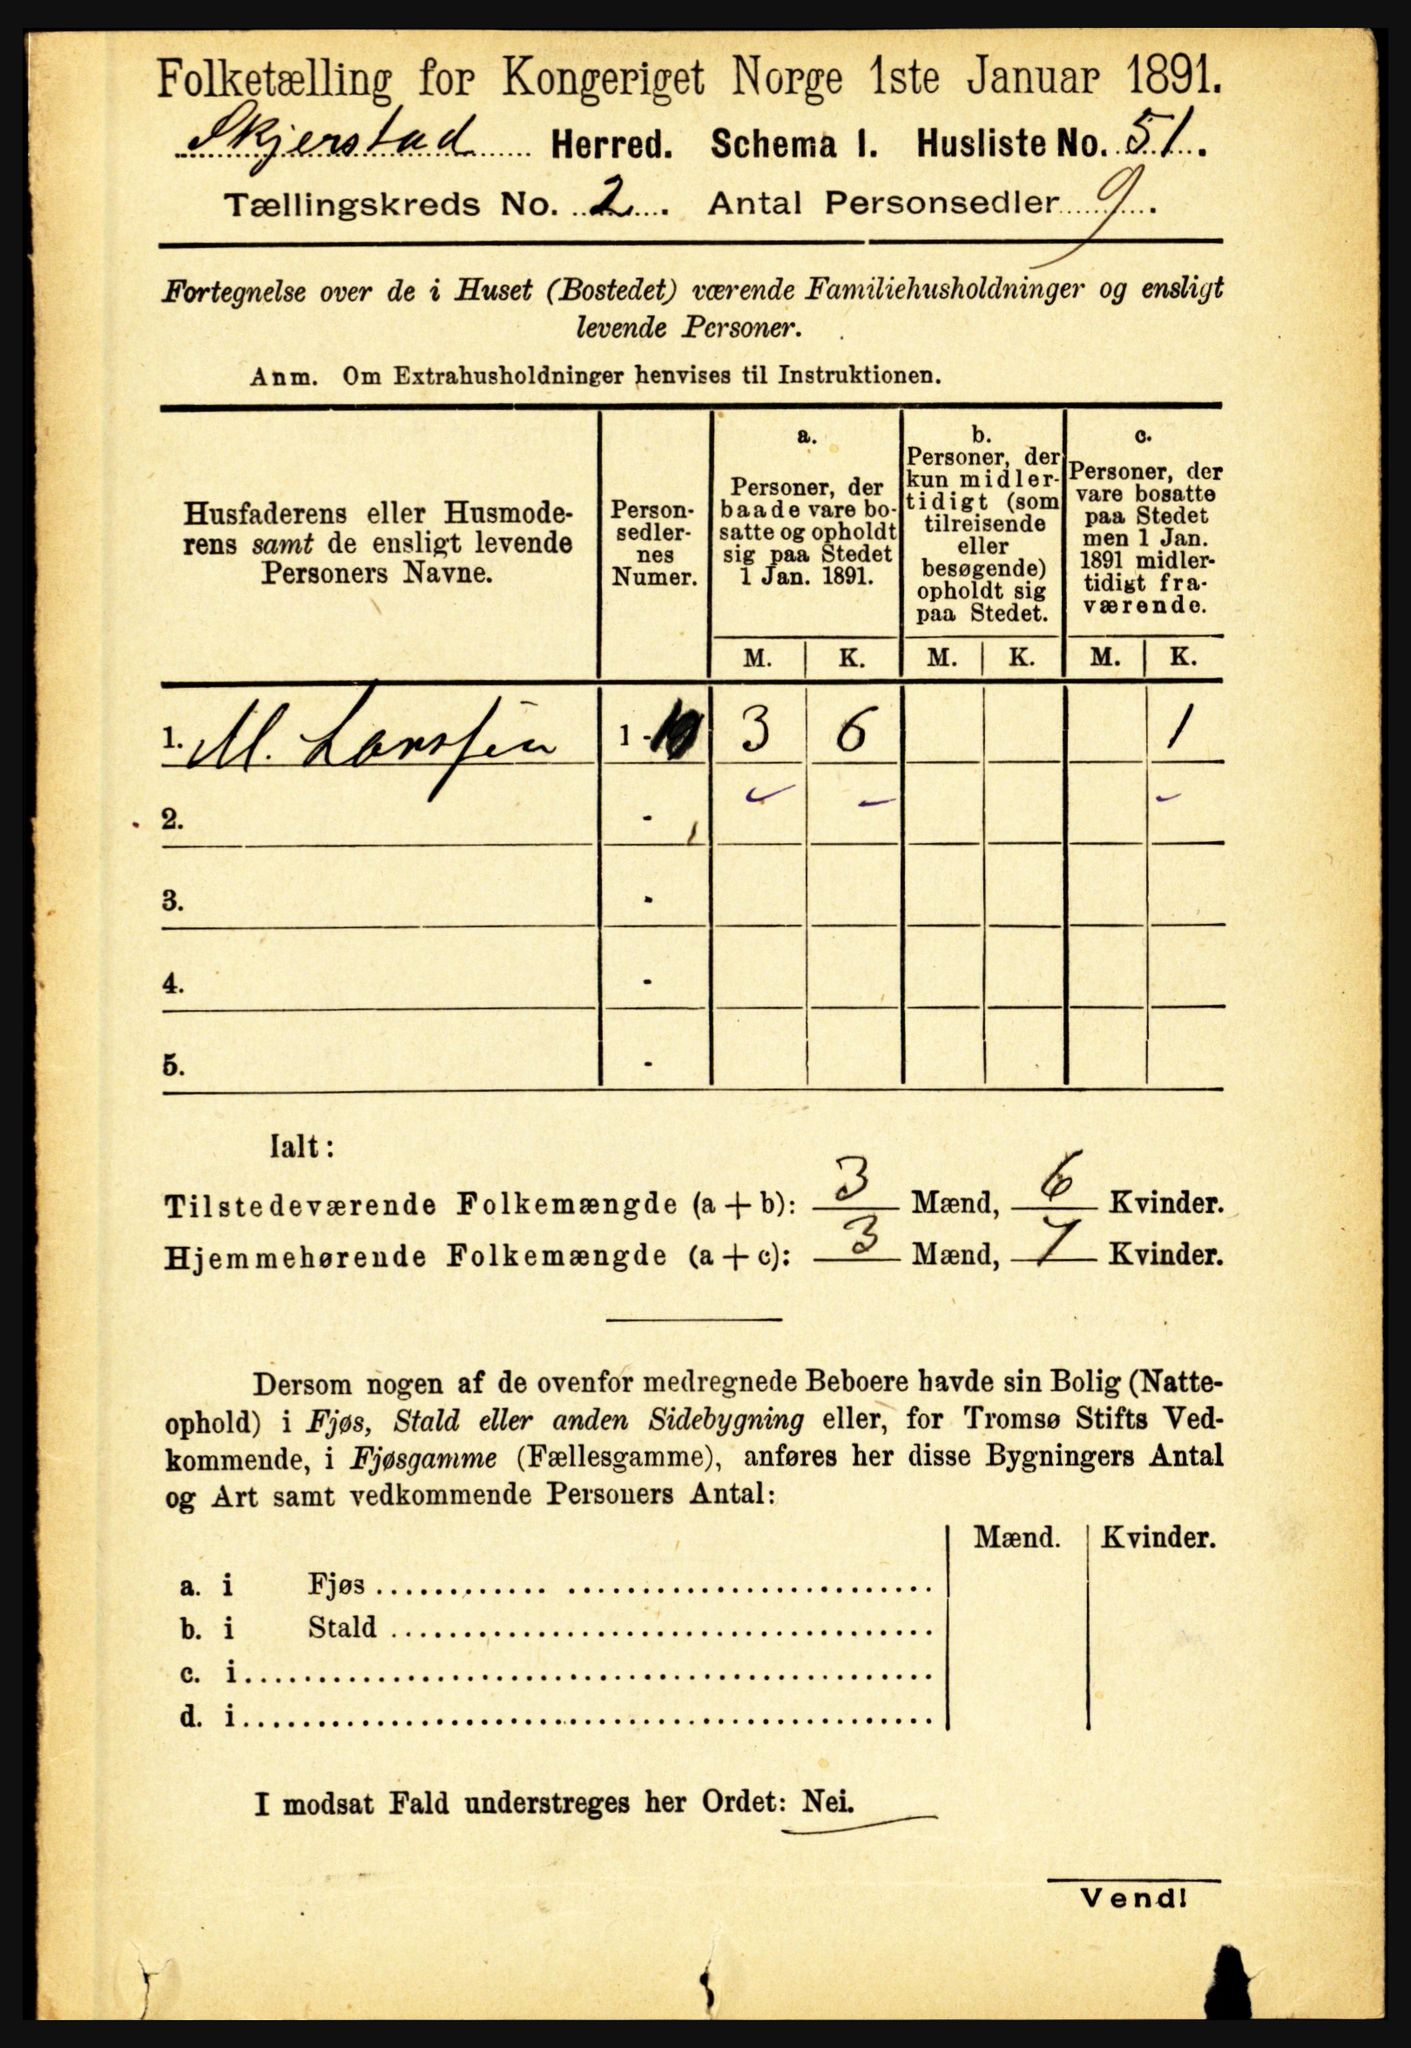 Folketælling for Kongeriget Norge 1ste Januar 1891.
Skjerstad Herred. Schema I. Husliste No. 51.
Tællingskreds No. 2. Antal Personsedler 9.
Fortegnelse over de i Huset (Bostedet) værende Familiehusholdninger og ensligt
levende Personer.
Anm. Om Extrahusholdninger henvises til Instruktionen.
Husfaderens eller Husmode-
rens samt de ensligt levende
Personers Navne.
Person-
sedler-
nes
Numer.
a.
Personer, der
baade vare bo-
satte og opholdt
sig paa Stedet
1 Jan. 1891.
b.
Personer, der
kun midler-
tidigt (som
tilreisende
eller
besøgende)
opholdt sig
paa Stedet.
c.
Personer, der
vare bosatte
paa Stedet
men 1 Jan.
1891 midler-
tidigt fra-
værende.
M. K. M. K. M. K.
1. M. Larssen 1 - 10 3 6 1
2. -
3. -
4. -
5. -
Ialt:
Tilstedeværende Folkemængde (a + b): 3 Mænd, 6 Kvinder.
Hjemmehørende Folkemængde (a + c): 3 Mænd, 7 Kvinder.
Dersom nogen af de ovenfor medregnede Beboere havde sin Bolig (Natte-
ophold) i Fjøs, Stald eller anden Sidebygning eller, for Tromsø Stifts Ved-
kommende, i Fjøsgamme (Fællesgamme), anføres her disse Bygningers Antal
og Art samt vedkommende Personers Antal:
Mænd. Kvinder.
a. i Fjøs
b. i Stald
c. i
d. i
I modsat Fald understreges her Ordet: Nei.
Vend!